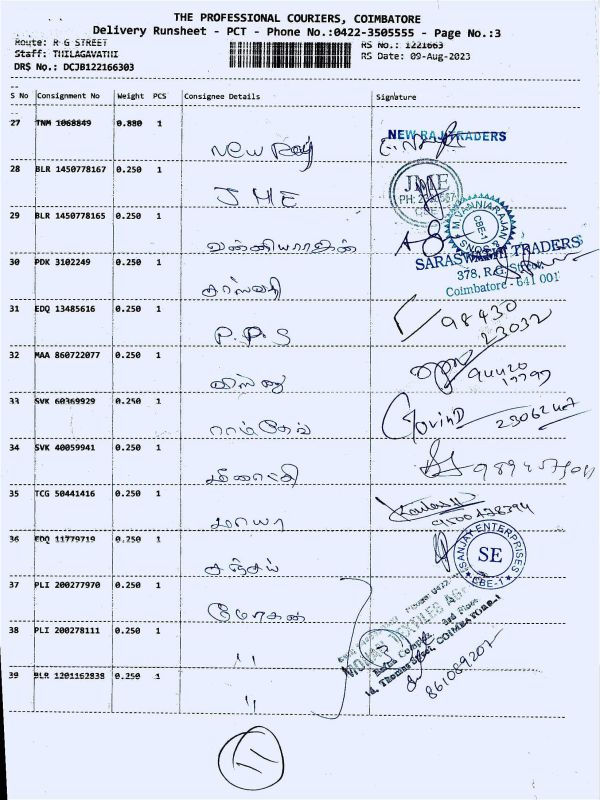 THE PROFESSIONAL COURIERS, COIMBATORE
Delivery Runsheet - PCT - Phone No.:0422-3505555 - Page No.:3
Route: R G STREET
RS No.: 1221663
Staff: THILAGAVATHI
RS Date: 09-Aug-2023
DRS No.: DCJB122166303
S No Consignment No Weight PCS Consignee Details Signature
27 TNM 1068849 0.880 1 New Raj NEW RAJ TRADERS
28 BLR 1450778167 0.250 1 JME JME
29 BLR 1450778165 0.250 1 வன்னியராஜன் M. VANNIARAJAN & SONS CBE-1
30 PDK 3102249 0.250 1 SARASWATHI TRADERS
378, R.G. Street,
Coimbatore - 641 001
31 EDQ 13485616 0.250 1 P.P.S 98430
23032
32 MAA 860722077 0.250 1
33 SVK 60369929 0.250 1 Govind
34 SVK 40059941 0.250 1
35 TCG 50441416 0.250 1 மாயா
36 EDQ 11779719 0.250 1 சஞ்சய் SANJAY ENTERPRISES SE CBE-1
37 PLI 200277970 0.250 1 மோகன்
38 PLI 200278111 0.250 1 "
39 BLR 1201162838 0.250 1 "
861089207
11